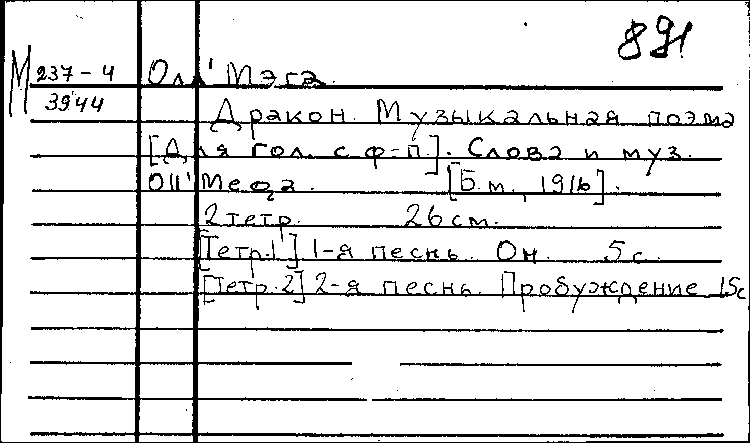 891
М 237-4
3944
Олл' Мэга.
Дракон. Музыкальная поэма
[Для гол. с ф-п.]. Слова и муз.
Oll' Mega. [Б.м., 1916].
2 тетр. 26 см.
[Тетр.1] 1-я песнь. Он. 5 с.
[Тетр.2] 2-я песнь. Пробуждение 15с